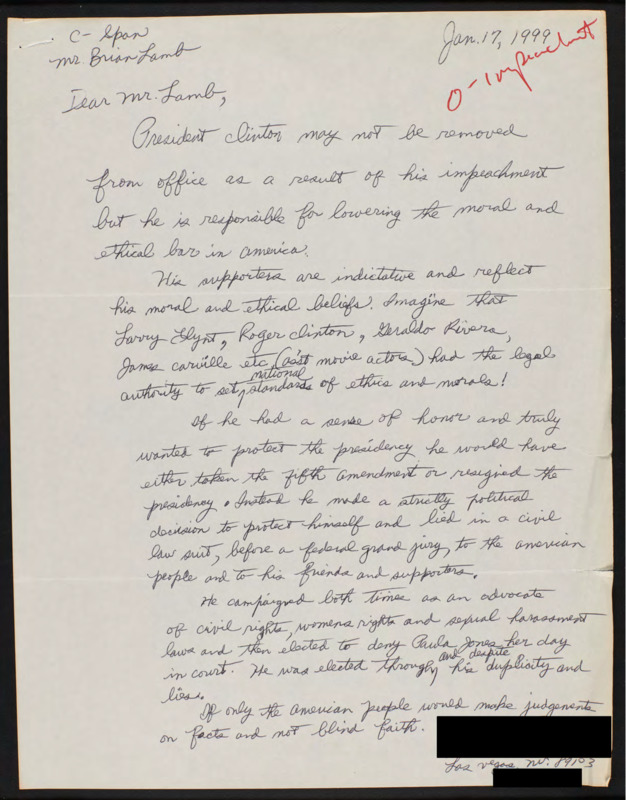 C-Span
Mr. Brian Lamb
Jan. 17, 1999
O-Impeachment
Dear Mr. Lamb,
President Clinton may not be removed
from office as a result of his impeachment
but he is responsible for lowering the moral and
ethical bar in america.
His supporters are indictative and reflect
his moral and ethical beliefs. Imagine that
Larry Flynt, Roger Clinton, Geraldo Rivera,
James Carville etc (asst movie actors) had the legal
authority to set national standards of ethics and morals!
If he had a sense of honor and truly
wanted to protect the presidency he would have
either taken the fifth amendment or resigned the
presidency. Instead he made a strictly political
decision to protect himself and lied in a civil
law suit, before a federal grand jury, to the american
people and to his friends and supporters.
He campaigned both times as an advocate
of civil rights, womens rights and sexual harassment
laws and then elected to deny Paula Jones her day
in court. He was elected through and despite his duplicity and
lies.
If only the american people would make judgements
on facts and not blind faith.
Las Vegas NV. 89103